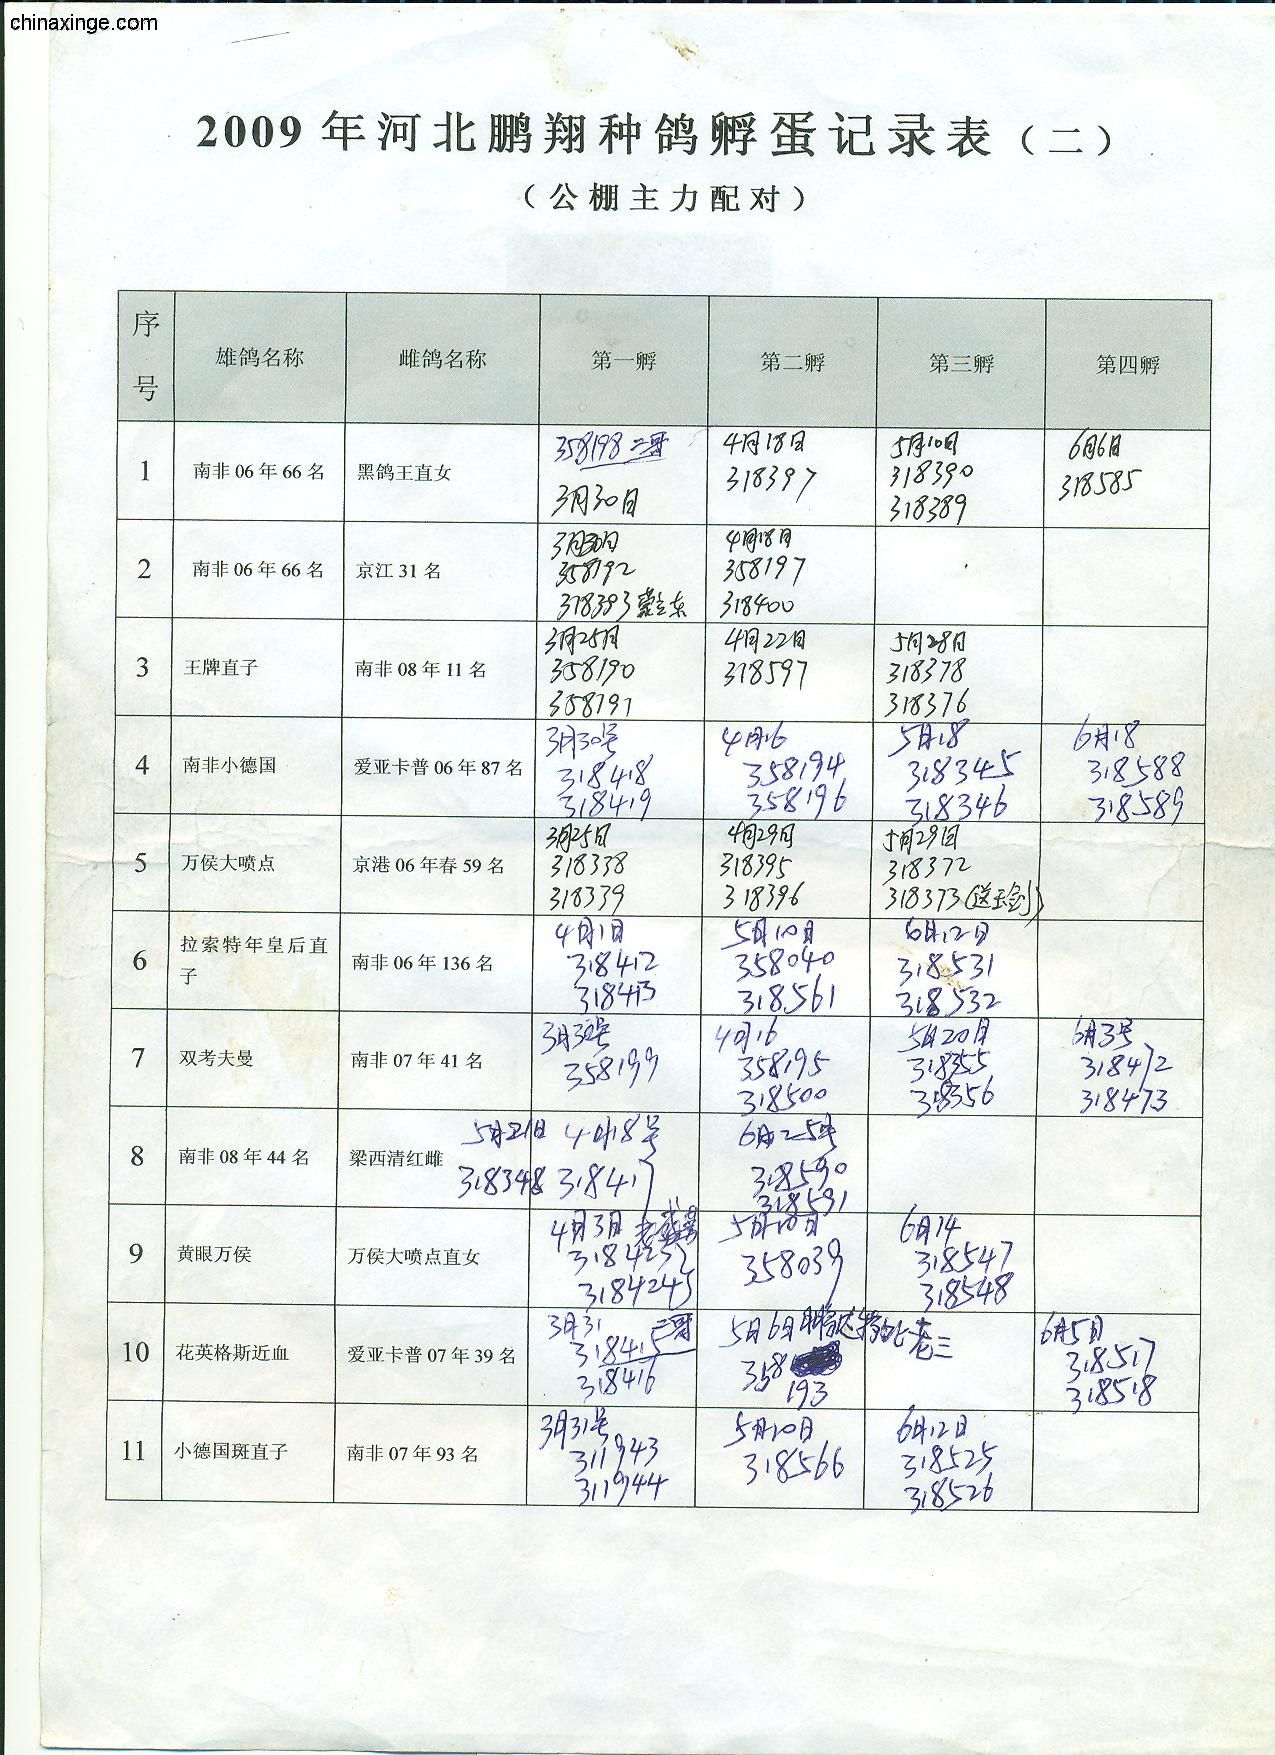 chinaxinge.com
2009年河北鹏翔种鸽孵蛋记录表（二）
（公棚主力配对）
序号 雄鸽名称 雌鸽名称 第一孵 第二孵 第三孵 第四孵
1 南非06年66名 黑鸽王直女
358198 二哥
3月30日
4月18日
318397
5月10日
318390
318389
6月6日
318585
2 南非06年66名 京江31名
3月30日
358192
318393
4月18日
358197
318400
3 王牌直子 南非08年11名
3月25日
358190
358191
4月22日
318597
5月28日
318378
318376
4 南非小德国 爱亚卡普06年87名
3月30号
318418
318419
4月16
358194
358196
5月18
318345
318346
6月18
318588
318589
5 万侯大喷点 京港06年春59名
3月25日
318338
318339
4月29日
318395
318396
5月29日
318372
318373(送王剑)
6 拉索特年皇后直
子
南非06年136名
4月1日
318412
318413
5月10日
358040
318561
6月12日
318531
318532
7 双考夫曼 南非07年41名
3月30号
358199
4月16
358195
318500
5月20日
318355
318356
6月3号
318472
318473
8 南非08年44名 梁西清红雌
5月21日
318348
4月18号
318417
6月25号
318590
318591
9 黄眼万侯 万侯大喷点直女
4月3日
5月10日
358039
6月14
318547
318548
10 花英格斯近血 爱亚卡普07年39名
3月31 二哥
318415
318416
5月6日 老三
358
193
6月5日
318517
318518
11 小德国斑直子 南非07年93名
3月31号
311943
311944
5月10日
318566
6月12日
318525
318526